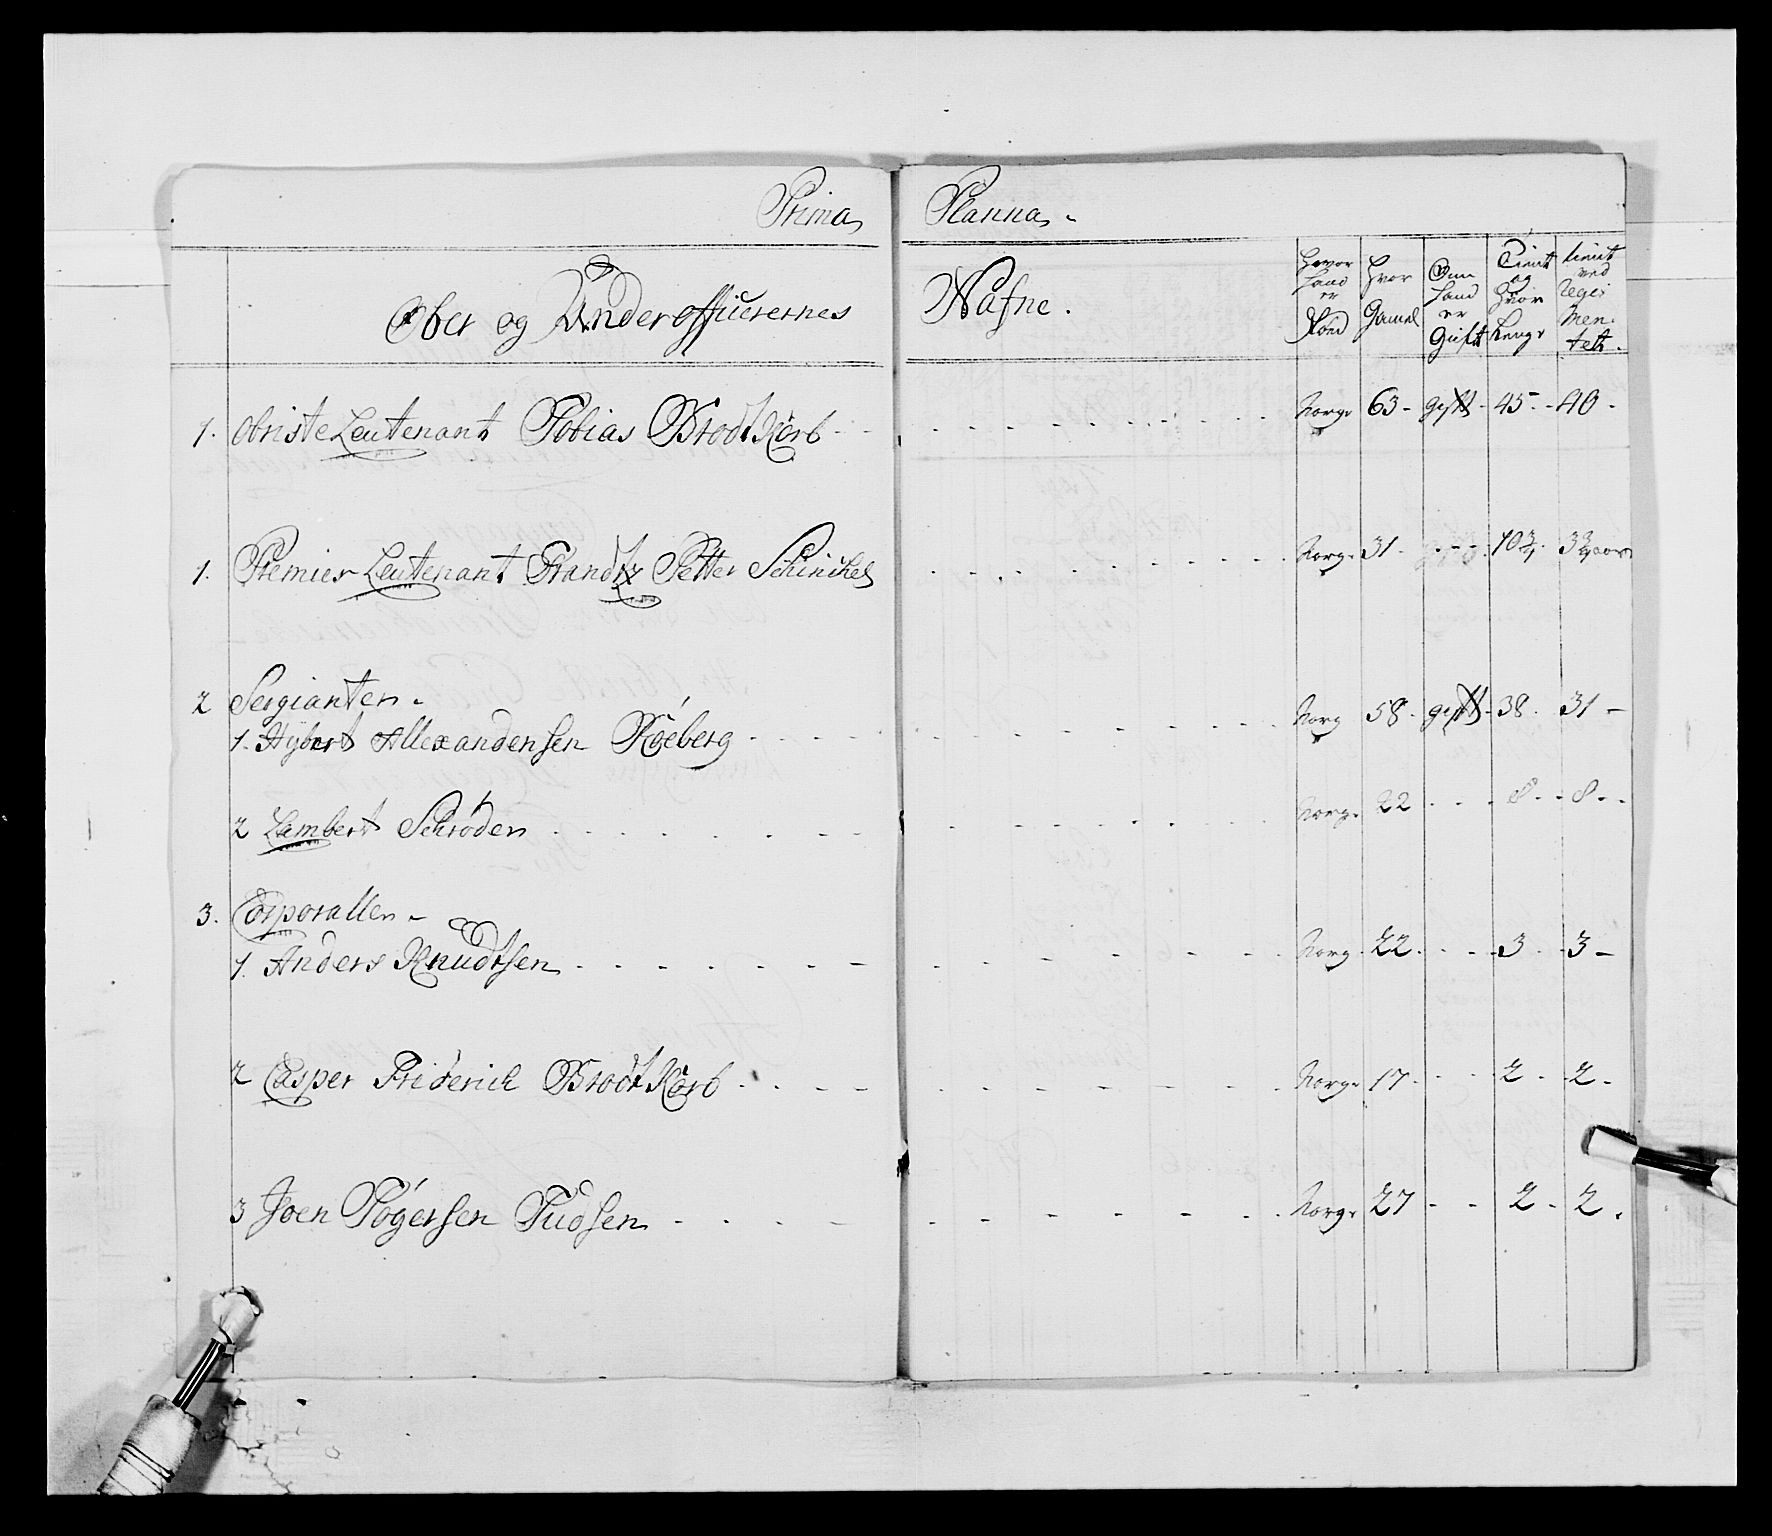 Prima Planna.
Ober og Underofficerernes Nafne.
Hvor hand er Fød
Hvor Gamel
Om hand er Gift
Tient og Hvor Lenge
tient ved Regi Men. tetz.
1. Obriste Leutenant Tobias BrodtKorb Norge 63 gift 45 40
1. Premier Leutenant Frandtz Petter Schinckel Norge 31 10 3/4 3 3/4 aar
2 Sergianter.
1. Hybert Allexandersen Røeberg Norg 58 gift 38 31
2 Lambert Schrøder Norge 22 8 8
3. Corporaller
1. Anders Knudtsen Norg 22 3 3
2 Casper Friderich BrodtKorb Norge 17 2 2
3 Joen Tøgersen Norge 27 2 2